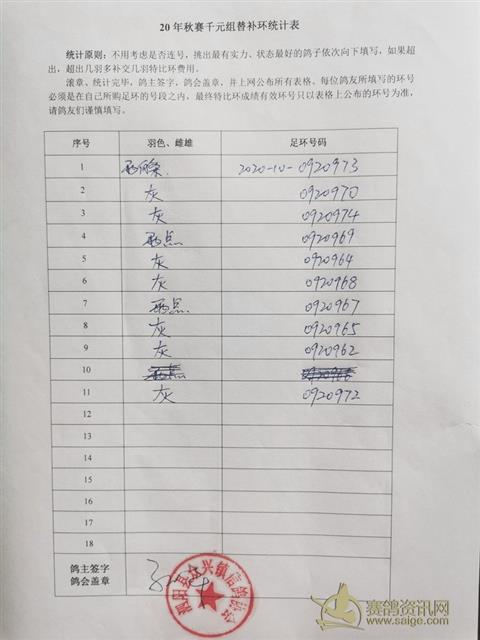 20年秋赛千元组替补环统计表
统计原则：不用考虑是否连号，挑出最有实力、状态最好的鸽子依次向下填写，如果超
出，超出几羽多补交几羽特比环费用。
滚章、统计完毕，鸽主签字，鸽会盖章，并上网公布所有表格。每位鸽友所填写的环号
必须是在自己所购足环的号段之内，最终特比环成绩有效环号只以表格上公布的环号为准，
请鸽友们谨慎填写。
序号 羽色、雌雄 足环号码
1 2020-10-0920973
2 灰 0920970
3 灰 0920974
4 雨点 0920969
5 灰 0920964
6 灰 0920968
7 雨点 0920967
8 灰 0920965
9 灰 0920962
10
11 灰 0920972
12
13
14
15
16
17
18
鸽主签字
鸽会盖章
兴镇信鸽协会
赛鸽资讯网
www.saige.com